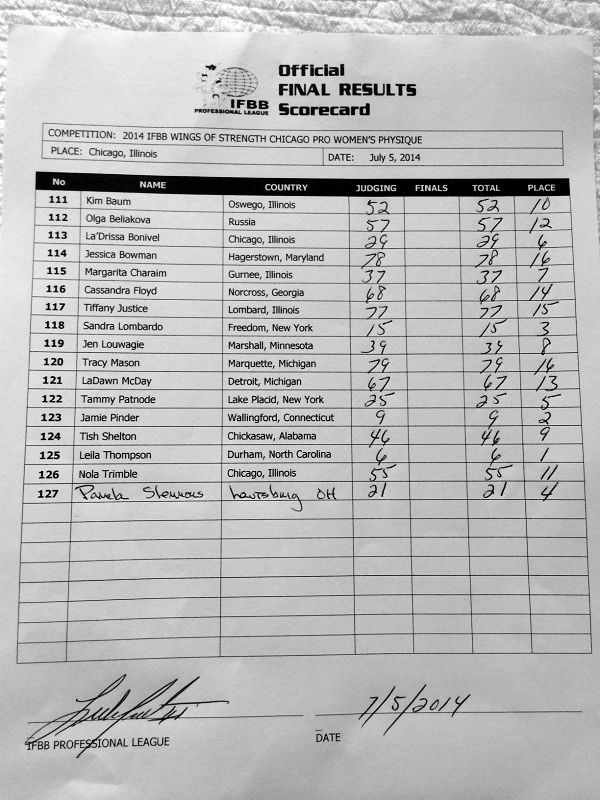 Official
FINAL RESULTS
Scorecard
IFBB
PROFESSIONAL LEAGUE
COMPETITION: 2014 IFBB WINGS OF STRENGTH CHICAGO PRO WOMEN'S PHYSIQUE
PLACE: Chicago, Illinois DATE: July 5, 2014
No NAME COUNTRY JUDGING FINALS TOTAL PLACE
111 Kim Baum Oswego, Illinois 52 52 10
112 Olga Beliakova Russia 57 57 12
113 La'Drissa Bonivel Chicago, Illinois 29 29 6
114 Jessica Bowman Hagerstown, Maryland 78 78 16
115 Margarita Charaim Gurnee, Illinois 37 37 7
116 Cassandra Floyd Norcross, Georgia 68 68 14
117 Tiffany Justice Lombard, Illinois 77 77 15
118 Sandra Lombardo Freedom, New York 15 15 3
119 Jen Louwagie Marshall, Minnesota 39 39 8
120 Tracy Mason Marquette, Michigan 79 79 16
121 LaDawn McDay Detroit, Michigan 67 67 13
122 Tammy Patnode Lake Placid, New York 25 25 5
123 Jamie Pinder Wallingford, Connecticut 9 9 2
124 Tish Shelton Chickasaw, Alabama 46 46 9
125 Leila Thompson Durham, North Carolina 6 6 1
126 Nola Trimble Chicago, Illinois 55 55 11
127 OH 21 21 4
7/5/2014
IFBB PROFESSIONAL LEAGUE DATE